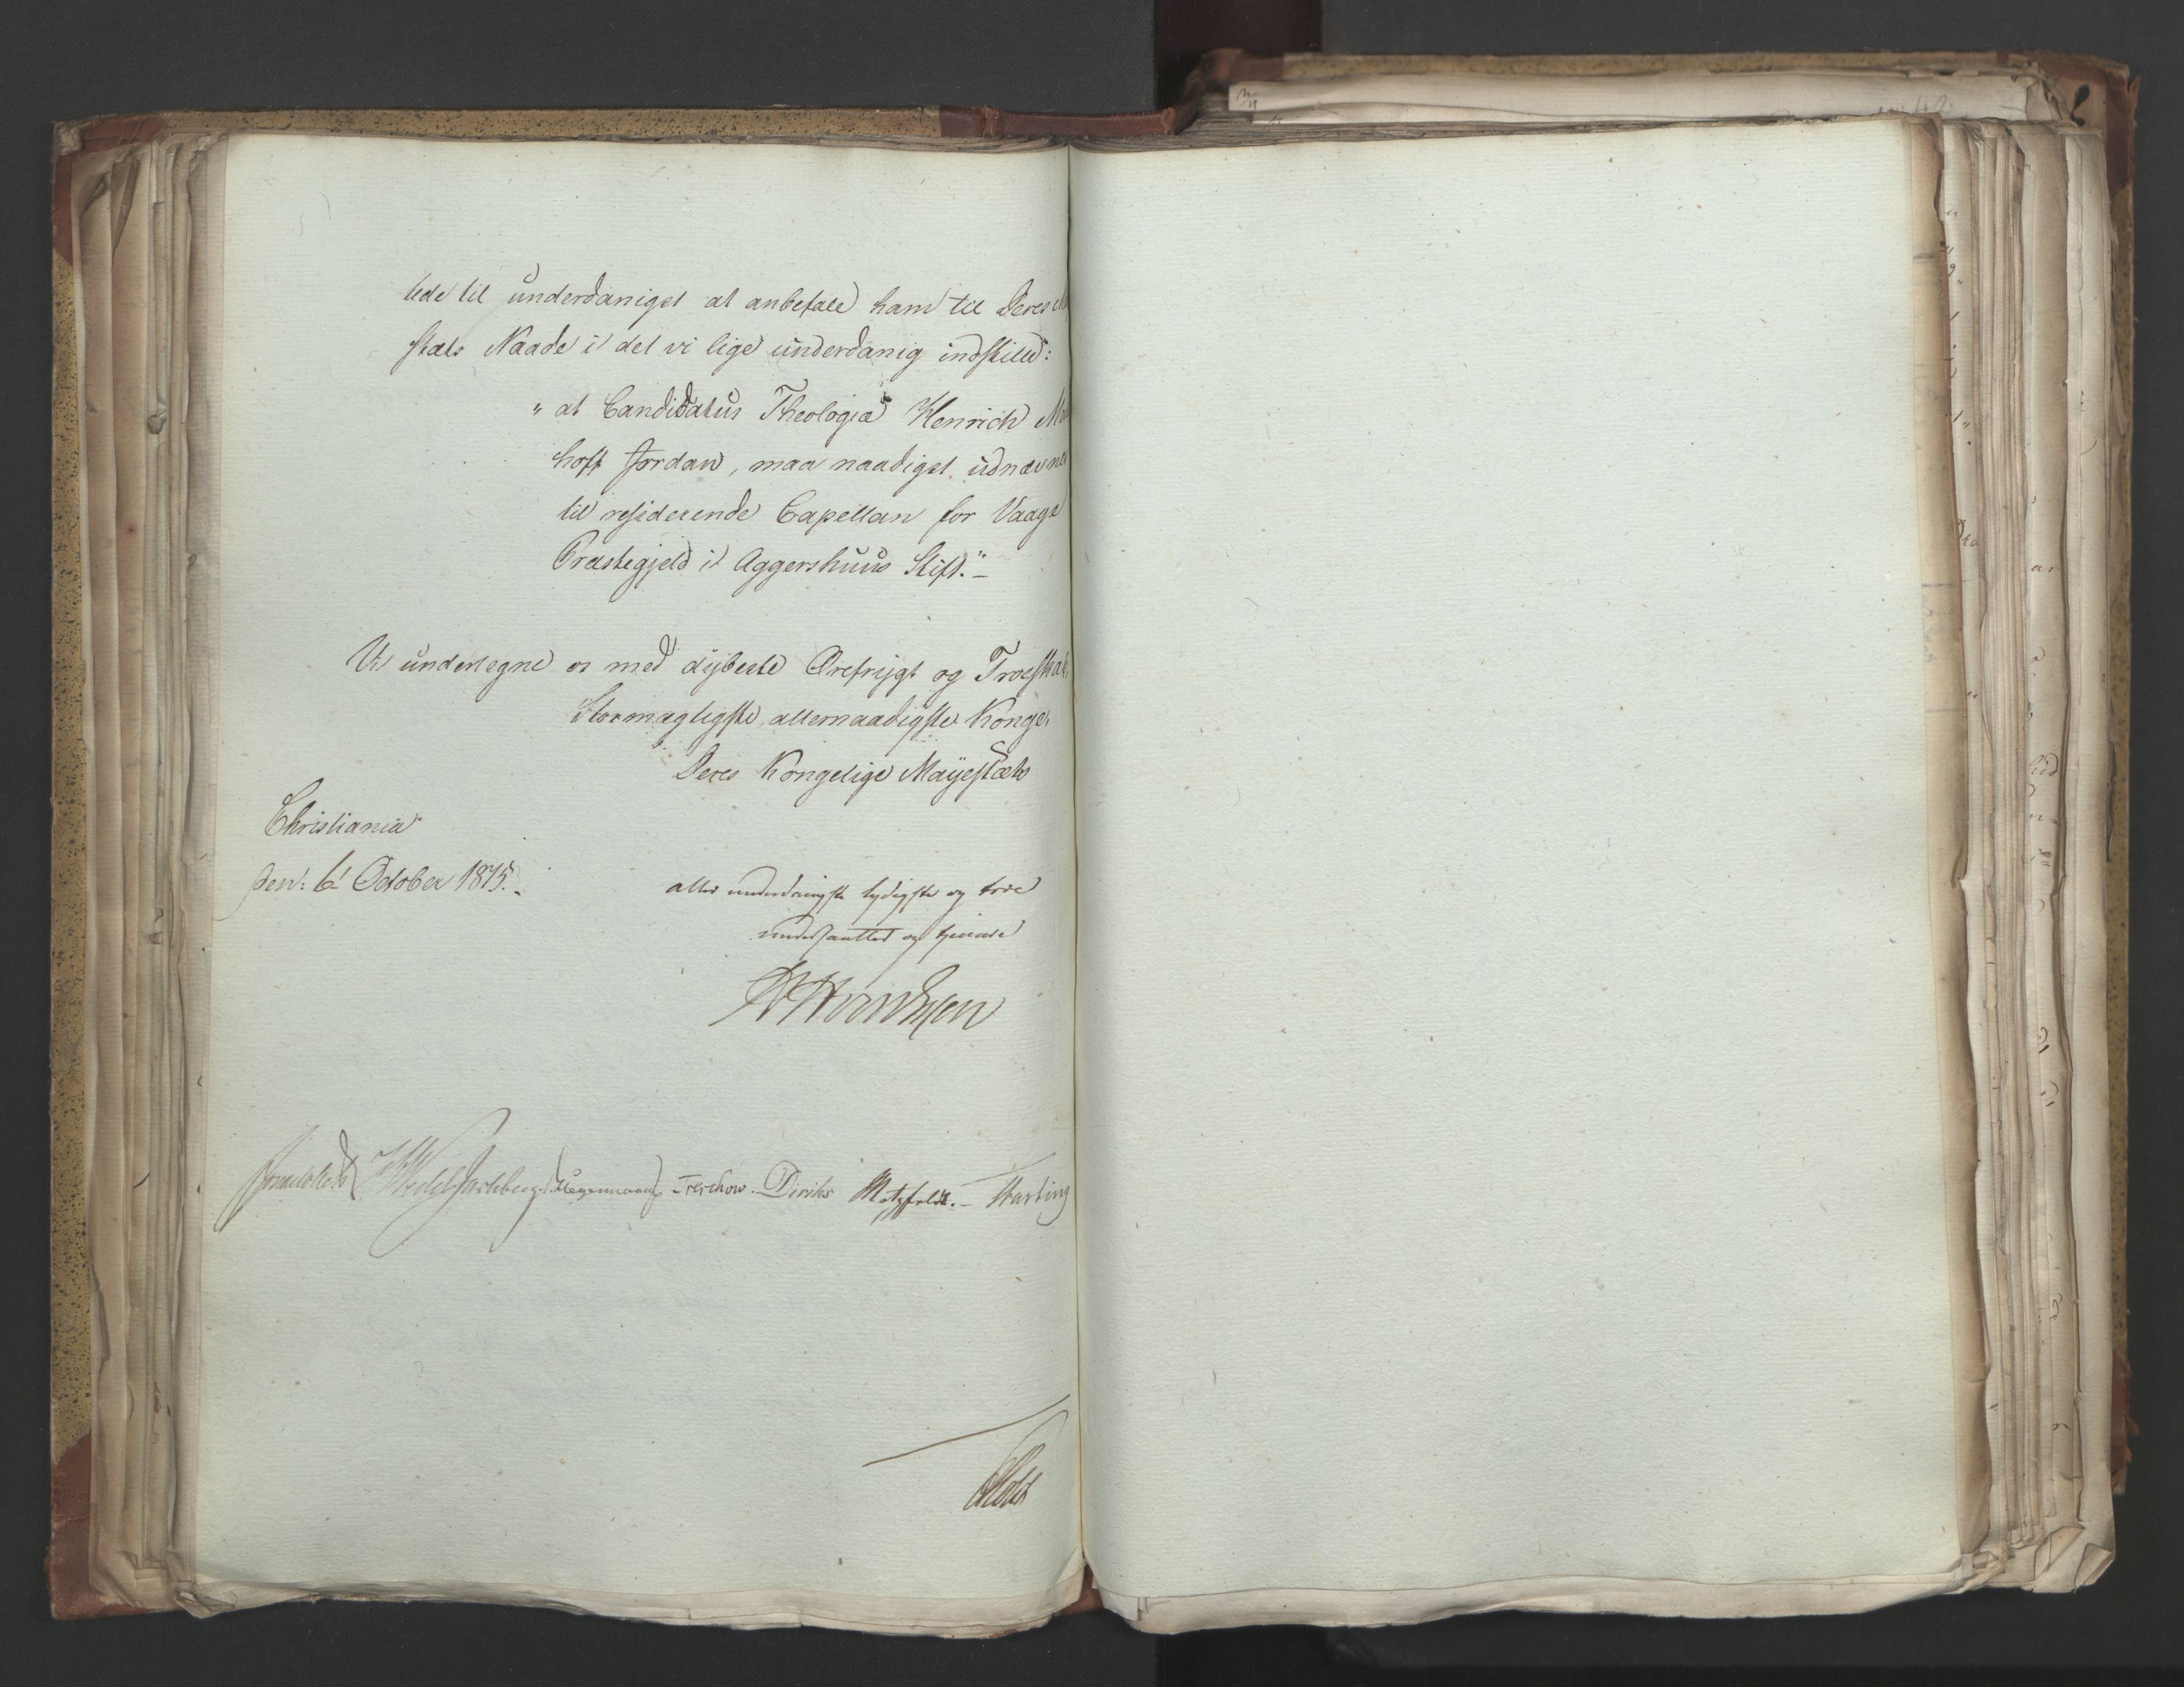 lede til underdanigst at anbefale ham til Deres
stæts Naade i det vi lige underdanig indstille:
"at Candidatus Theologiæ Henrich
hoff Jordan, maa naadigst udnævnes
til residerende Capellan for Vaage
Præstegjeld i Aggershuus Stift."—
Vi undertegne os med dybeste Ærefrygt og Troeskab,
Stormægtigste, allernaadigste Konge,
Deres Kongelige Mayestæts
Christiania
den: 6t October 1815.
aller underdanigste lydigste og troe
undersaatter og tjenere
Wedel Jarlsberg. Hegermann Treschow. Diriks Motzfeldt. — Harting
Holst